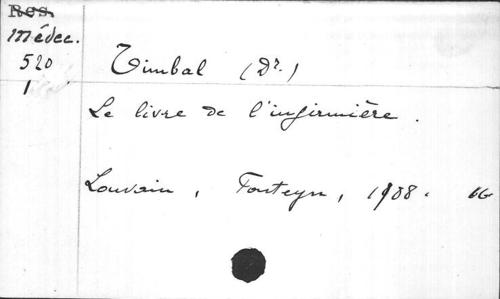 Res.
Médec.
520
1
Timbal (Dr.)
Le livre de l'infirmière.
Louvain, Fonteyn, 1908.